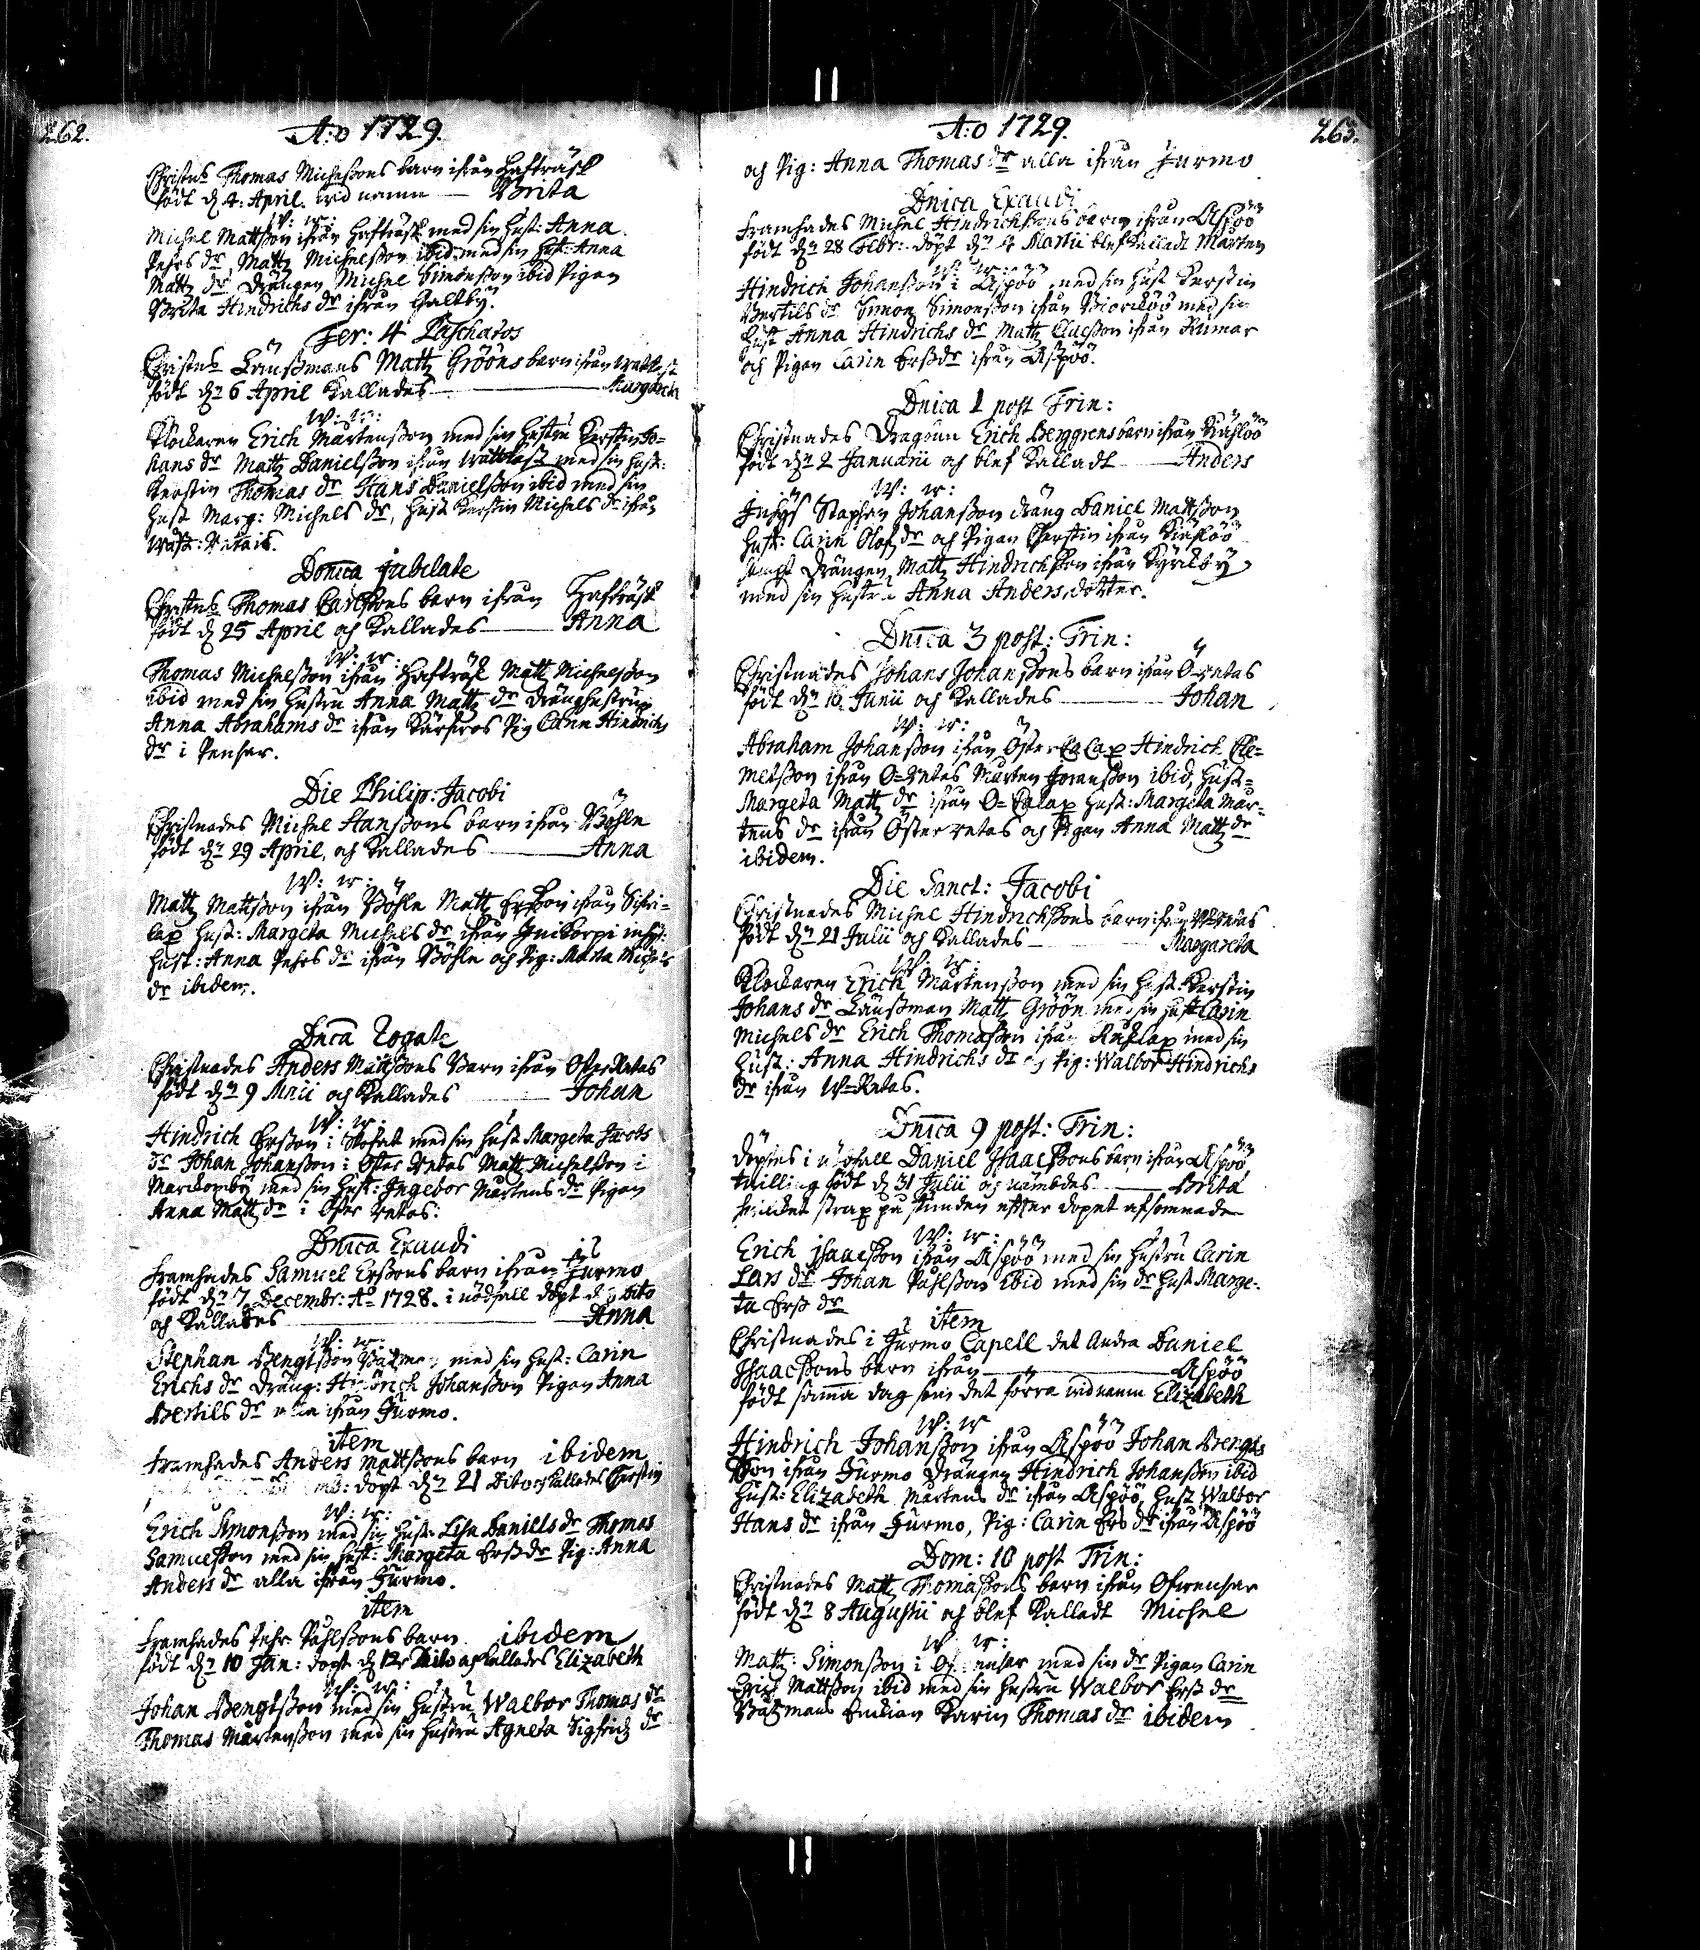 262.
A:o 1729.
Christn: Thomas Michelßons barn ifrån Hafträsk
födt d 4: April. wid namn — Brita
W: w:
Michel Mattßon ifrån Hafträsk med sin hust: Anna
Pehrs dr, Matz Michelßon ibid. med sin hust: Anna
Matz dr Drängen Michel Simonßon ibid Pigan
Brita Hindrichs dr ifrån Galtby.
Fer: 4 Paschatos
Christn: Länßmans Matz Gröons barn ifrån
födt dn 6 April kallades — Margareta
W: w:
Klockaren Erich Mårtenßon med sin hustru Kerstin Jo=
hans dr Matz Danielßon ifrån Wattlast med sin hust:
Kerstin Thomas dr Hans Danielßon ibid med sin
hust Marg: Michels dr, hust Kerstin Michels dr ifrån
Wäst: Retais.
Domca Jubilate
Christn: Thomas Carlßons barn ifrån Hafträsk
födt d 25 April och kallades — Anna
W: w:
Thomas Michelßon ifrån Hafträsk Matz Michelßon
ibid med sin hustru Anna Matz dr Dränghustrun
Anna Abrahams dr ifrån Kärkros Pig Carin Hindrichs
dr i Pensar.
Die Philip: Jacobi
Christnades Michel Hanßons barn ifrån Böhle
födt dn 29 April, och kallades — Anna
W: w:
Matz Mattßon ifrån Böhle Matz Erßon ifrån Sifri=
lax hust: Margeta Michels dr ifrån
hust: Anna Pehrs dr ifrån Böhle och Pig: Marta Michels
dr ibidem.
Dnca Rogate
Christnades Anders Mattßons Barn ifrån Öster Retas
födt dn 9 Maii och kallades — Johan
W: w:
Hindrich Erßon i med sin hust Margeta Jacobs
dr Johan Johanßon i Öster Retas Matz Michelßon i
Marckomby med sin hust: Ingebor Mårtens dr Pigan
Anna Matz dr i Öster Retas:
Dnica Exaudi
Framhades Samuel Erßons barn ifrån Jurmo
födt dn 7 Decembr: Ao 1728. i nödfall döpt d dito
och kallades — Anna
W: w:
Stephan Bengtßon Båtzman med sin hust: Carin
Erichs dr Dräng: Hindrich Johanßon Pigan Anna
Bertils dr alla ifrån Jurmo.
item
Framhades Anders Mattßons barn ibidem
döpt dn 21 Dito och kallades Cherstin
W: w:
Erich Simonßon med sin hust: Lisa Daniells dr Thomas
Samuelßon med sin hust: Margeta Erß dr Pig: Anna
Anders dr alla ifrån Jurmo.
item
Framhades Pehr Påhlßons barn ibidem
födt dn 10 Jan: döpt d 12 Dito och kallades Elizabeth
W: w:
Johan Bengtßon med sin hustru Walbor Thomas dr
Thomas Mårtenßon med sin hustru Agneta Sigfridz dr
263.
A:o 1729.
och Pig: Anna Thomas dr alla ifrån Jurmo
Dnica Exaudi
Framhades Michel Hindrichßons barn ifrån Aspöö
födt dn 28 Febr: döpt dn 4 Martii blef kalladt Mårten
W: w:
Hindrich Johanßon i Aspöö med sin hust Kerstin
Bertils dr Simon Simonßon ifrån Biörcköö med sin
hust Anna Hindrichs dr Matz Claeßon ifrån Rumar
och Pigan Carin Erß dr ifrån Aspöö.
Dnica 1 post Trin:
Christnades Dragoun Erich Berggrens barn ifrån
födt dn 2 Januarii och blef kalladt — Anders
W: w:
Inhys Staphen Johanßon dräng Daniel Mattßon
hust: Carin Olofz dr och Pigan Cherstin ifrån
samt Drängen Matz Hindrichßon ifrån Kyrkby
med sin hustru Anna Anders dotter.
Dnica 3 post: Trin:
Christnades Johans Johanßons barn ifrån Ö=retas
födt dn 16 Junii och kallades — Johan
W: w:
Abraham Johanßon ifrån Öster Calax Hindrich Cle=
metßon ifrån Ö=Retas Mårten Joranßon ibid, hust=
Margeta Matz dr ifrån Ö=Calax hust: Margeta Mår=
tens dr ifrån Öster retas och Pigan Anna Matz dr
ibidem.
Die Sanct: Jacobi
Christnades Michel Hindrichßons barn ifrån W=retas
födt dn 21 Julii och kallades — Margareta
W: w:
Klockaren Erich Mårtenßon med sin hust: Kerstin
Johans dr Länßman Matz Gröön med sin hust Carin
Michels dr Erich Thomaßon ifrån Ruxlax med sin
hust: Anna Hindrichs dr och Pig: Walbor Hindrichs
dr ifrån W=Retas.
Dnica 9 post: Trin:
Döptes i nödfall Daniel Isaacßons barn ifrån Aspöö
twilling födt d 31 Julii och nämbdes — Brita
hwilket strax på stunden effter dopet afsomnade
W: w:
Erich Isaacßon ifrån Aspöö med sin hustru Carin
Lars dr Johan Påhlßon ibid med sin dr hust Marge=
ta Erß dr
item
Christnades i Jurmo Capell det andra Daniel
Isaacßons barn ifrån — Aspöö
födt samma dag som det förra wid namn Elizabeth
W: w
Hindrich Johanßon ifrån Aspöö Johan Bengts
ßon ifrån Jurmo Drängen Hindrich Johanßon ibid
hust: Elizabeth Mårtens dr ifrån Aspöö, hust Walbor
Hans dr ifrån Jurmo, Pig: Carin Ers dr ifrån Aspöö
Dom: 10 post Trin:
Christnades Matz Thomaßons barn ifrån Ofwensar
födt dn 8 Augusti och blef kalladt Michel
W: w:
Matz: Simonßon i med sin dr Pigan Carin
Erich Mattßon ibid med sin hustru Walbor Erß dr
Båtzmans Enckian Karin Thomas dr ibidem